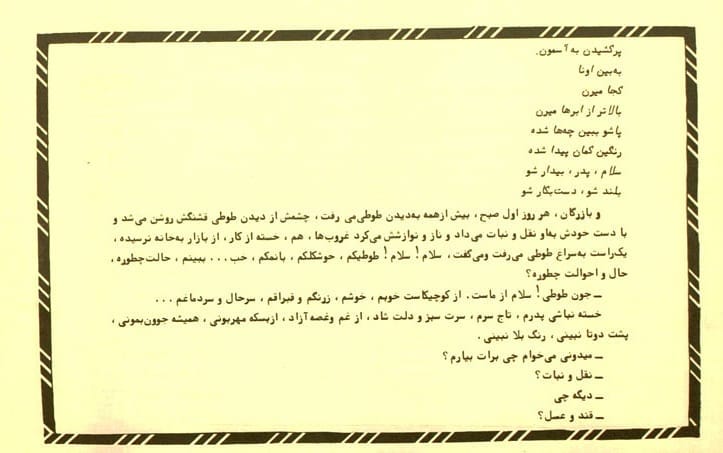 پرکشیدن به آسمون.
به‌بین اونا
کجا میرن
بالاتر از ابرها میرن
پاشو ببین چه‌ها شده
رنگین کمان پیدا شده
سلام ، پدر ، بیدار شو
بلند شو ، دست‌بکار شو
و بازرگان ، هر روز اول صبح ، بیش از همه به‌دیدن طوطی‌می رفت ، چشمش از دیدن طوطی قشنگش روشن می‌شد و
با دست خودش به‌او نقل و نبات می‌داد و ناز و نوازشش می‌کرد غروب‌ها ، هم ، خسته از کار ، از بازار به‌خانه نرسیده ،
یک‌راست به‌سراغ طوطی می‌رفت ومی‌گفت ، سلام ! سلام ! طوطیکم ، خوشگلکم ، بانمکم ، خب ... ببینم ، حالت‌چطوره ،
حال و احوالت چطوره؟
ــ جون طوطی ! سلام از ماست . از کوچیکاست خوبم ، خوشم ، زرنگم و قبراقم ، سرحال و سردماغم ...
خسته نباشی پدرم ، تاج سرم ، سرت سبز و دلت شاد ، از غم وغصه آزاد ، ازبسکه مهربونی ، همیشه جوون‌بمونی ،
پشت دوتا نبینی ، رنگ بلا نبینی .
ــ میدونی می‌خوام چی برات بیارم ؟
ــ نقل و نبات ؟
ــ دیگه چی
ــ قند و عسل ؟